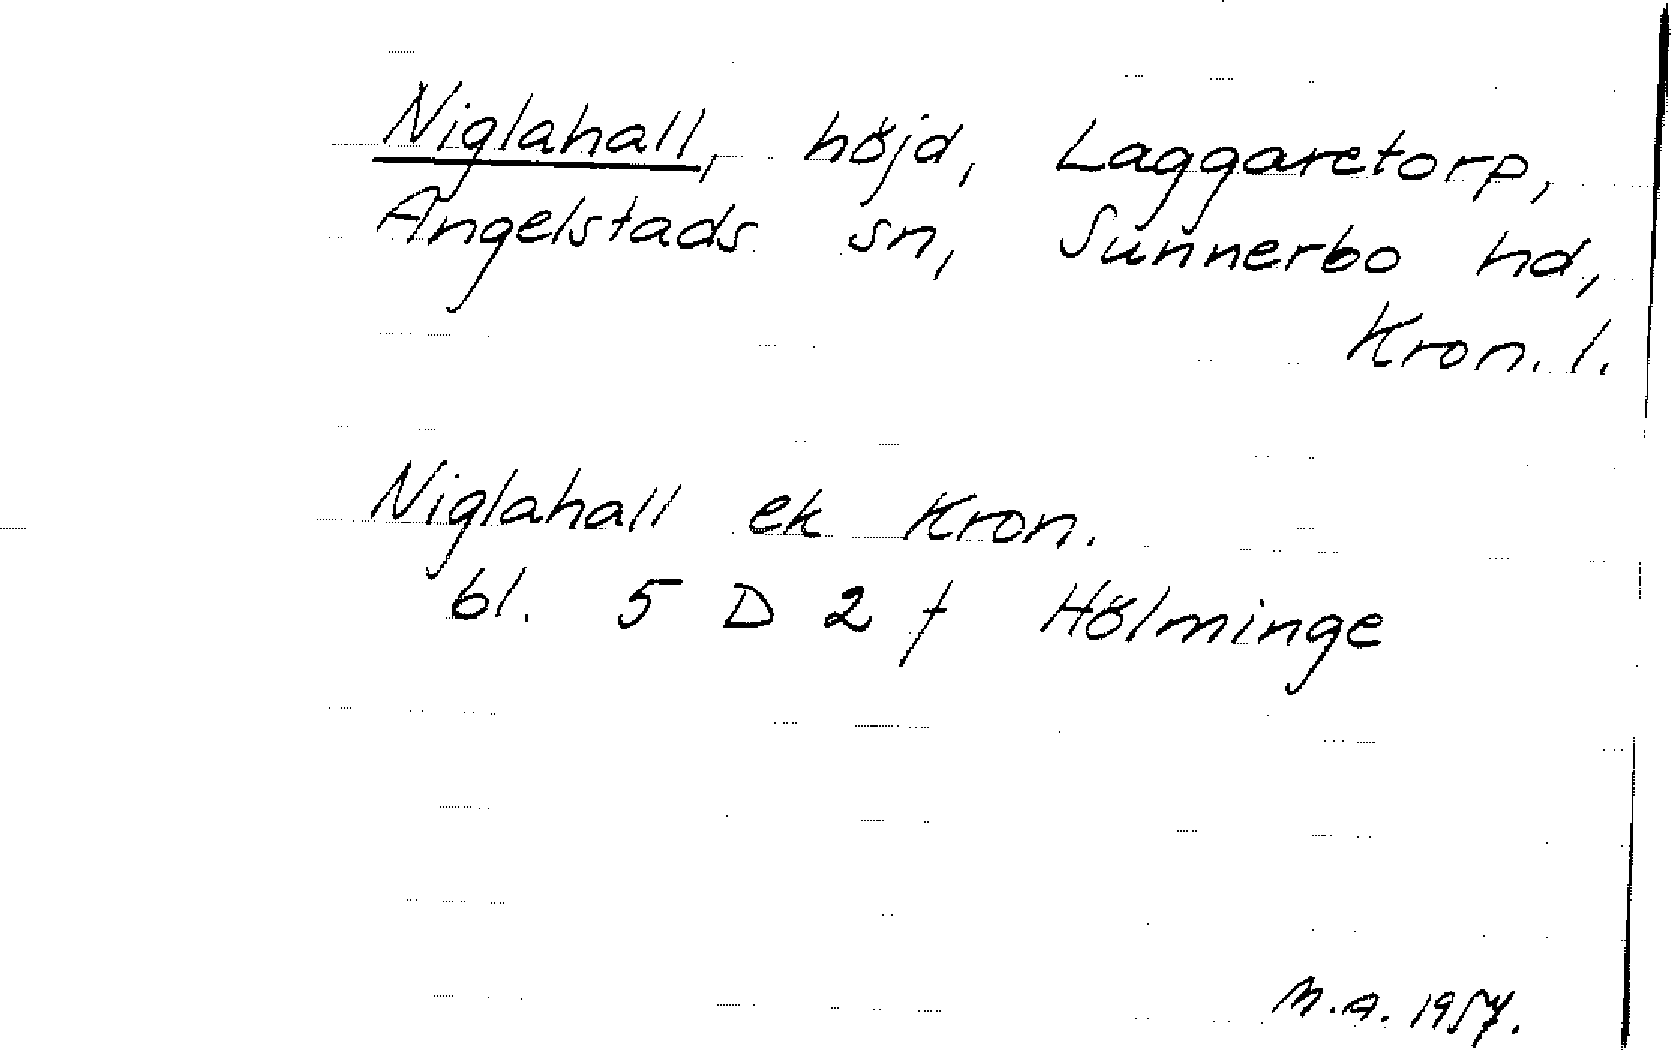 Niglahall, höjd, Laggaretorp,
Angelstads sn, Sunnerbo hd,
Kron. l.
Niglahall ek Kron.
bl. 5 D 2 f Hölminge
M.A. 1957.